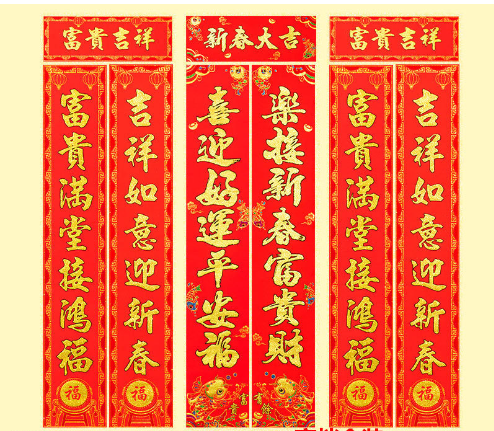 富貴吉祥
吉祥如意迎新春
富貴滿堂接鴻福
福
福
新春大吉
樂接新春富貴財
喜迎好運平安福
富貴
有餘
富貴吉祥
吉祥如意迎新春
富貴滿堂接鴻福
福
福